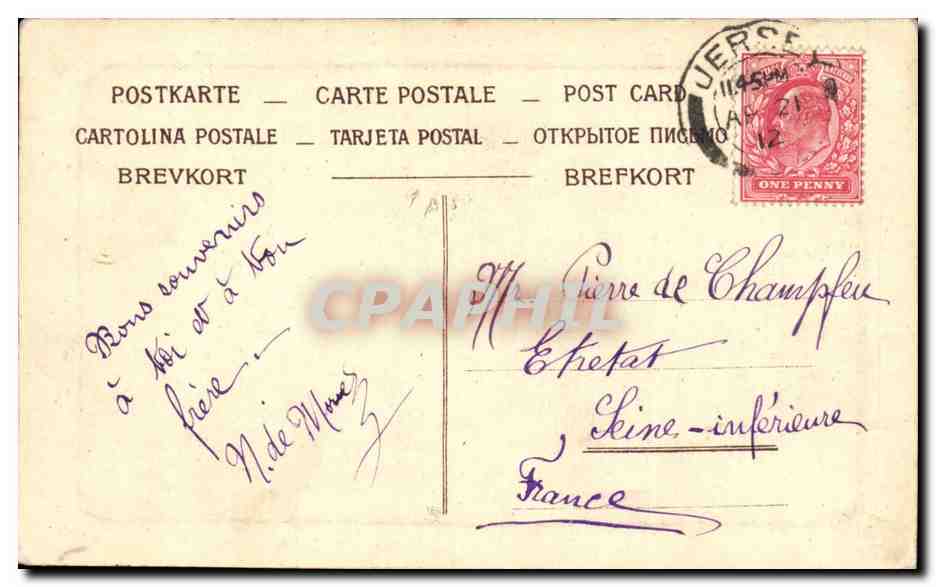 POSTKARTE — CARTE POSTALE — POST CARD
CARTOLINA POSTALE — TARJETA POSTAL — ОТКРЫТОЕ ПИСЬМО
BREVKORT — BREFKORT
JERSEY
11.45PM
AP 21
12
ONE PENNY
Bons souvenirs
à toi et à ton
frère —
N. de
CPAPHIL
Mr Pierre de Champfeu
Etretat
Seine-inférieure
France